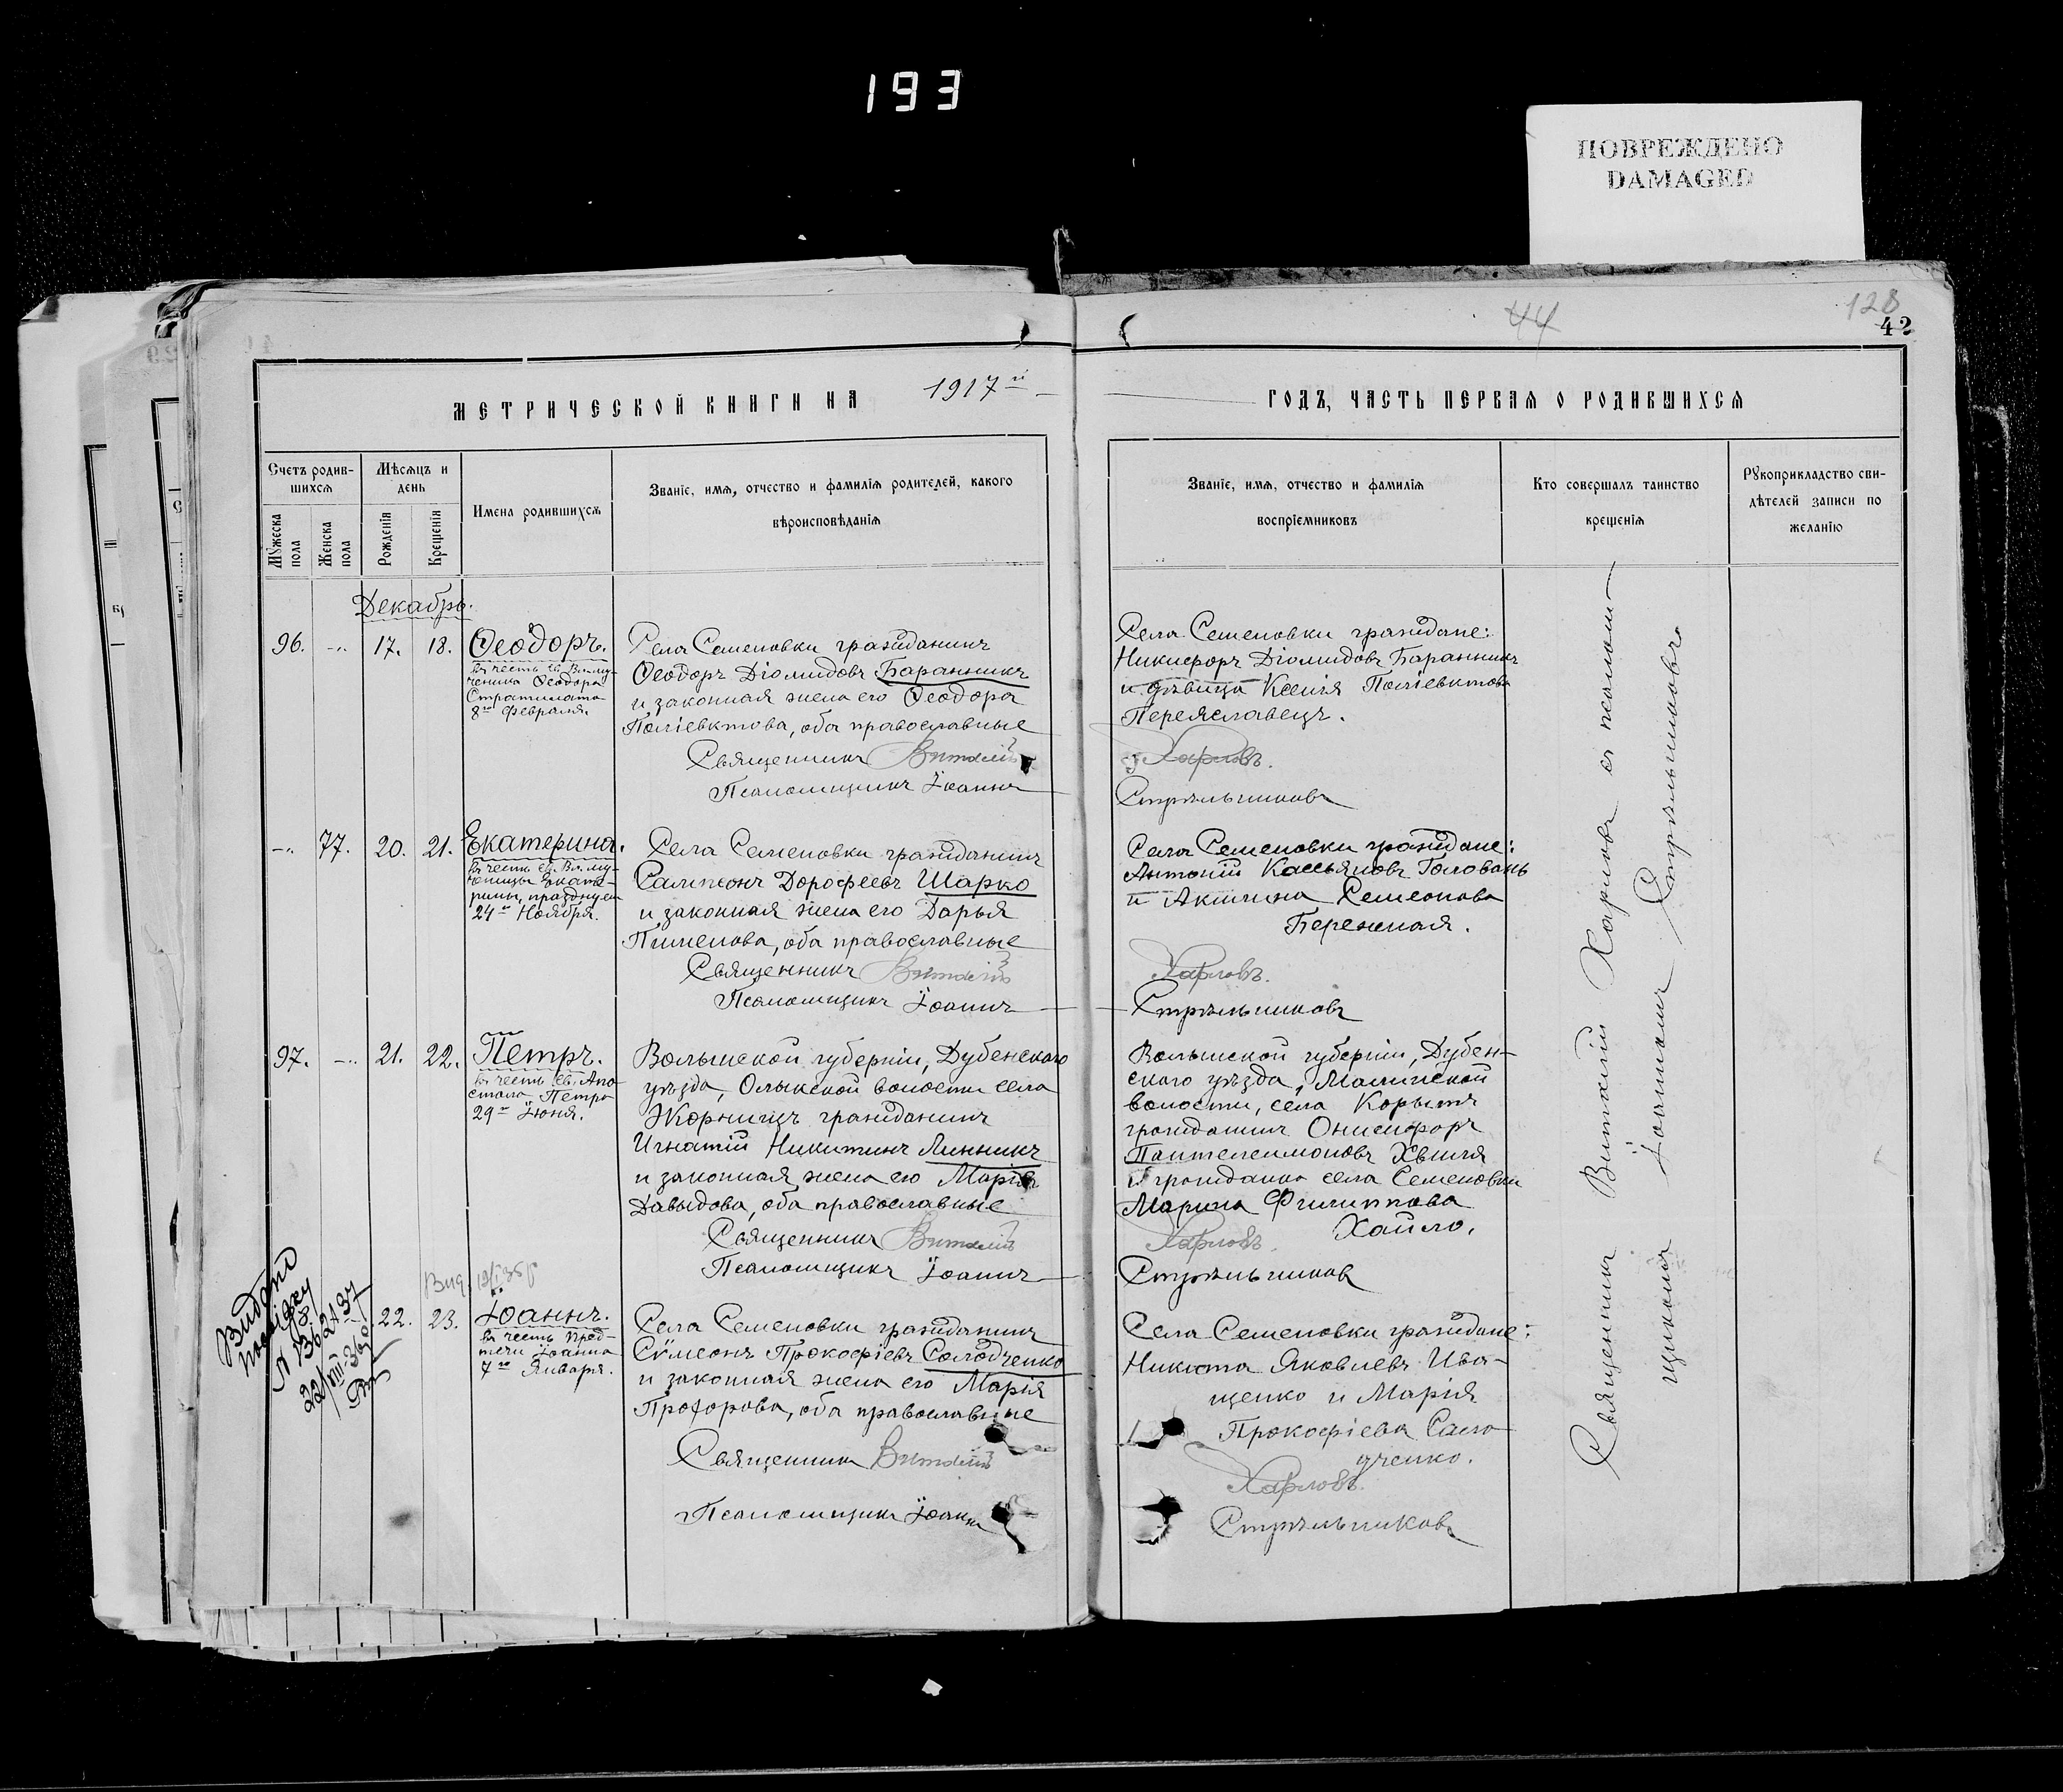 193
ПОВРЕЖДЕНО
DAMAGED
44
128
42
МЕТРИЧЕСКОЙ КНИГИ НА 1917й
ГОДЪ, ЧАСТЬ ПЕРВАЯ О РОДИВШИХСЯ
Счетъ родив-
шихся
Мѣсяцъ и
день
Мужеска
пола
Женска
пола
Рожденія
Крещенія
Имена родившихся
Званіе, имя, отчество и фамилія родителей, какого
вѣроисповѣданія
Званіе, имя, отчество и фамилія
воспріемниковъ
Кто совершалъ таинство
крещенія
Рукоприкладство сви-
дѣтелей записи по
желанію
Декабрь.
96. -„- 17. 18. Ѳеодоръ.
въ честь св. Вл.му-
ченика Ѳеодора
Стратилата
8го Февраля.
Села Семеновки гражданинъ
Ѳеодоръ Діомидовъ Баранникъ
и законная жена его Ѳеодора
Поліевктова, оба православные
Священникъ Виталій
Псаломщикъ Іоаннъ
Села Семеновки граждане:
Никифоръ Діомидовъ Баранникъ
и дѣвица Ксенія Поліевктова
Переяславецъ.
Харловъ.
Стрѣльниковъ
-„- 77. 20. 21. Екатерина.
въ честь св. Вл.му-
ченицы Екате-
рины, празднуем
24го Ноября.
Села Семеновки гражданинъ
Сампсонъ Дорофеевъ Шарко
и законная жена его Дарья
Пименова, оба православные
Священникъ Виталій
Псаломщикъ Іоаннъ
Села Семеновки граждане:
Антоній Кассьяновъ Головань
и Акилина Семеонова
Бережная.
Харловъ.
Стрѣльниковъ
97. -„- 21. 22. Петръ.
въ честь св. Апо-
стола Петра
29го Іюня.
Волынской губерніи, Дубенского
уѣзда, Олыкской волости села
Жорнищъ гражданинъ
Игнатій Никитинъ Линникъ
и законная жена его Марія
Давыдова, оба православные
Священникъ Виталій
Псаломщикъ Іоаннъ
Волынской губерніи, Дубен-
ского уѣзда, Малинской
волости, села Корытъ
гражданинъ Онисифоръ
Пантелеимоновъ Хвыля
и гражданка села Семеновки
Марина Филиппова
Хайло.
Харловъ.
Стрѣльниковъ
Видано
22/VIII-36
22. 23. Іоаннъ.
въ честь Пред-
течи Іоанна
7го Января.
Села Семеновки гражданинъ
Сѵмеонъ Прокофіевъ Солодченко
и законная жена его Марія
Прохорова, оба православные
Священникъ Виталій
Псаломщикъ Іоаннъ
Села Семеновки граждане:
Никита Яковлевъ Ива-
щенко и Марія
Прокофіева Соло-
дченко.
Харловъ.
Стрѣльниковъ
Священникъ Виталій Харловъ съ псалом-
щикомъ Іоанномъ Стрѣльниковымъ